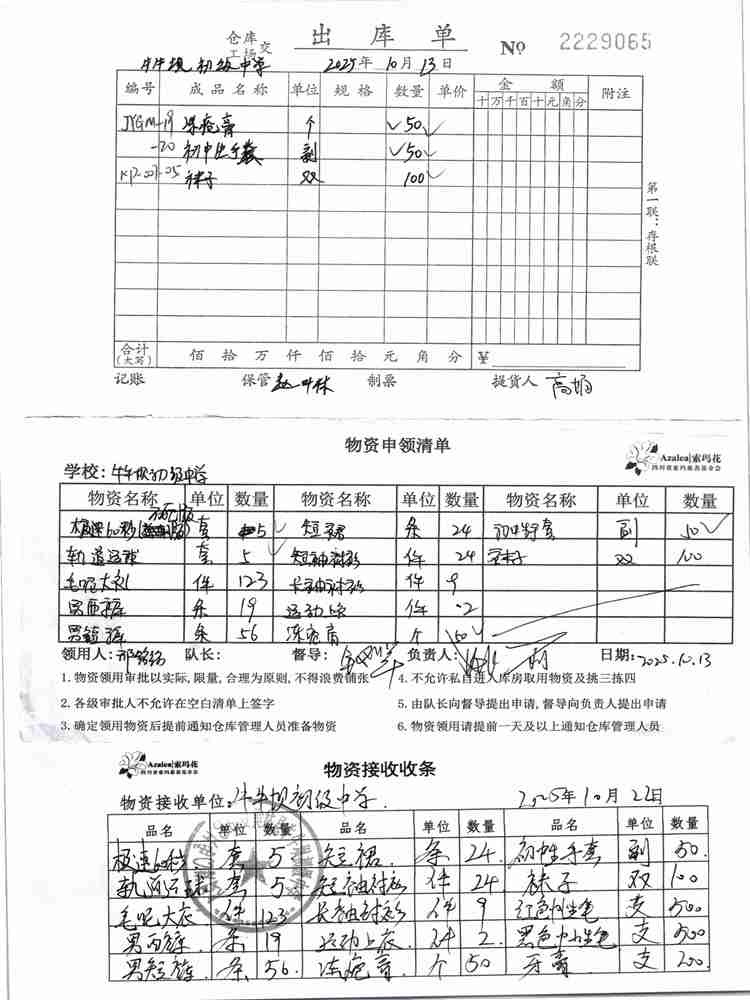 仓库
工场交
出 库 单
№ 2229065
牛牛坝初级中学 2025年 10月 13日
编号 成品名称 单位 规格 数量 单价 金额 附注
十万千百十元角分
JYGM-19 冻疮膏 个 √50√
-20 初中生手套 副 √50√
05 袜子 双 100√
第一联：存根联
合计(大写) 佰 拾 万 仟 佰 拾 元 角 分 ¥
记账 保管 制票 提货人
物资申领清单
Azalea|索玛花
四川省索玛慈善基金会
学校：牛牛坝初级中学
物资名称 单位 数量 物资名称 单位 数量 物资名称 单位 数量
极速60秒 套 5√ 短裙 条 24 初中手套 副 50√
轨道运球 套 5 短袖衬衫 件 24 袜子 双 100
毛呢大衣 件 123 长袖衬衫 件 9
男西裤 条 19 运动上衣 件 2
男短裤 条 56 冻疮膏 个 50√
领用人： 队长： 督导： 负责人： 日期：2025.10.13
1. 物资领用审批以实际,限量,合理为原则,不得浪费铺张
4. 不允许私自进入库房取用物资及挑三拣四
2. 各级审批人不允许在空白清单上签字
5. 由队长向督导提出申请,督导向负责人提出申请
3. 确定领用物资后提前通知仓库管理人员准备物资
6. 物资领用请提前一天及以上通知仓库管理人员
Azalea|索玛花
四川省索玛慈善基金会
物资接收收条
物资接收单位：牛牛坝初级中学 2025年10月22日
品名 单位 数量 品名 单位 数量 品名 单位 数量
极速60秒 套 5 短裙 条 24. 初中生手套 副 50.
轨道运球 套 5 短袖衬衫 件 24. 袜子 双 100
毛呢大衣 件 123 长袖衬衫 件 9 红色中性笔 支 500
男西裤 条 19 运动上衣 件 2. 黑色中性笔 支 500
男短裤 条 56. 冻疮膏 个 50 牙膏 支 200.